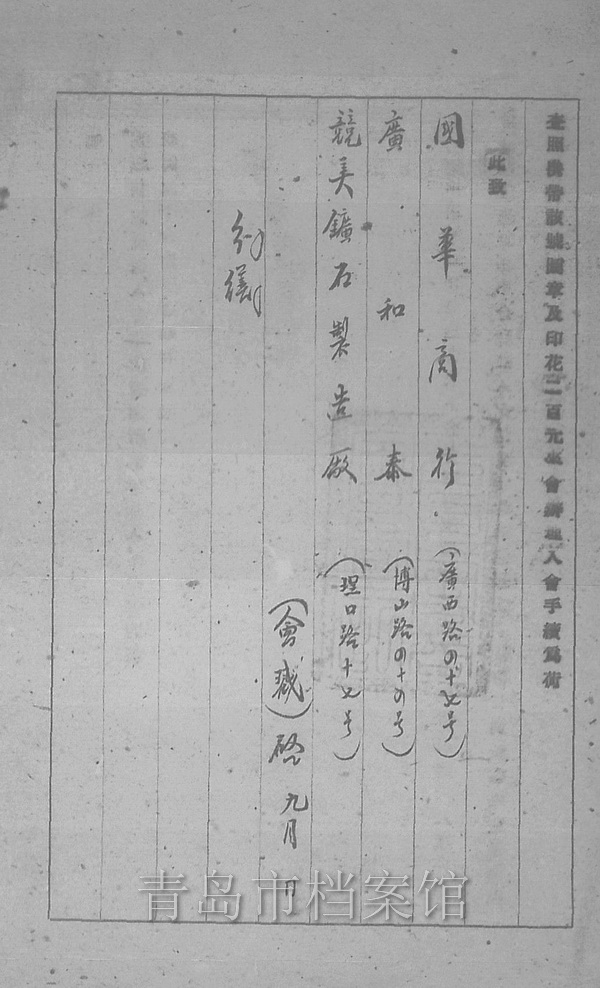 查照携帶該號圖章及印花二百元來會辦理入會手續為荷
此致
國華商行（廣西路四十七号）
廣和泰（博山路四十四号）
競美鑛石製造厰（理口路十七号）
（會戳）啓 九月 日
青岛市档案馆